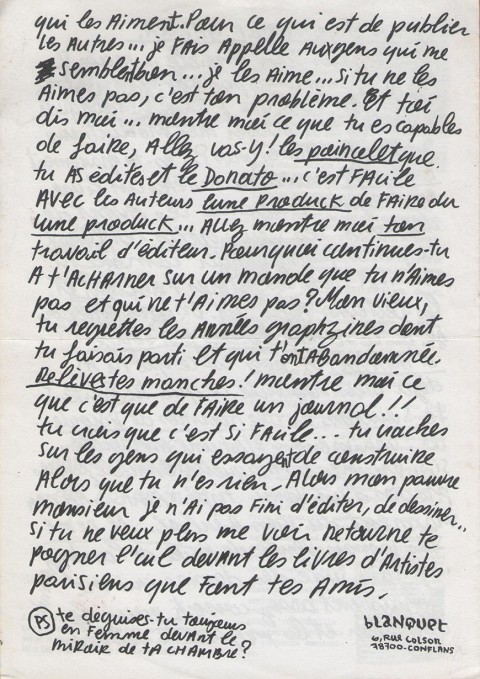 qui les Aiment. Pour ce qui est de publier
les Autres... je FAis Appelle Aux gens qui me
semblent bien... je les Aime... si tu ne les
Aimes pas, c'est ton problème. Et toi
dis moi... montre moi ce que tu es capables
de faire, Allez vas-y! les poincelet que
tu AS édités et le Donato... c'est FAcile
AVec les Auteurs lune Produck de FAire du
lune produck... ALLez montre moi ton
travail d'éditeur. Pourquoi continues-tu
A t'AcHArner sur un monde que tu n'Aimes
pas et qui ne t'Aimes pas? Mon vieux,
tu regrettes les Années graphzines dont
tu faisais parti et qui t'ont ABandonnée.
Relèves tes manches! montre moi ce
que c'est que de FAire un journal!!!
tu crois que c'est si FAcile... tu craches
sur les gens qui essayent de construire
Alors que tu n'es rien. Alors mon pauvre
monsieur je n'Ai pas Fini d'éditer, de dessiner..
si tu ne veux plus me voir retourne te
pogner l'cul devant les livres d'Artistes
parisiens que Font tes Amis.
PS te déguises-tu toujours
en Femme devant le
miroir de tA CHAMBRE?
blANquet
6, rue Colsor
78700-CONFLANS